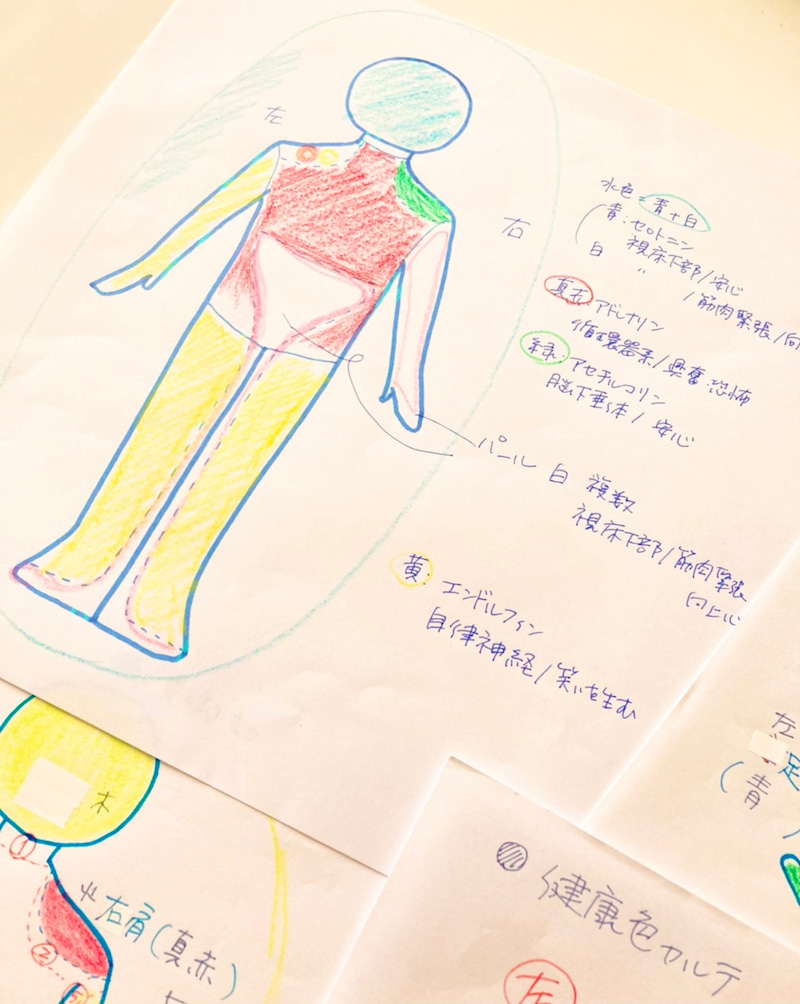 左
右
水色=青+白
青:セロトニン
視床下部/安心
白 〃 /筋肉緊張/向
真赤:アドレナリン
循環器系/興奮・恐怖
緑:アセチルコリン
脳下垂体/安心
パール白 複数
視床下部/筋肉緊張
向上心
黄:エンドルフィン
自律神経/笑いを生む
木
①
右肩(真赤)
②
⑤
左
足
(青)
健康色カルテ
左